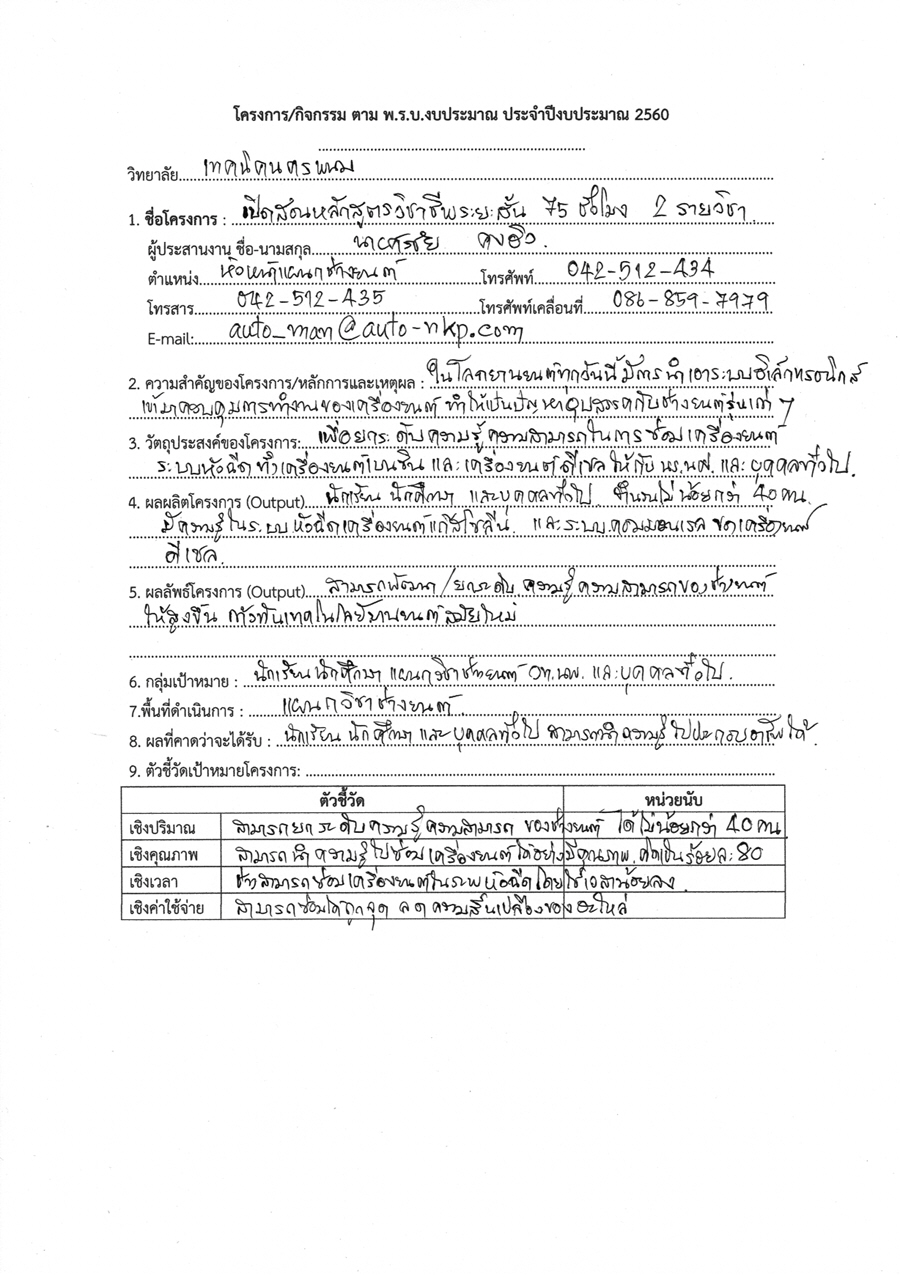 โครงการ/กิจกรรม ตาม พ.ร.บ.งบประมาณ ประจำปีงบประมาณ 2560
วิทยาลัย เทคนิคนครพนม
1. ชื่อโครงการ : เปิดสอนหลักสูตรวิชาชีพระยะสั้น 75 ชั่วโมง 2 รายวิชา
ผู้ประสานงาน ชื่อ-นามสกุล
ตำแหน่ง หัวหน้าแผนกช่างยนต์ โทรศัพท์ 042-512-434
โทรสาร 042-512-435 โทรศัพท์เคลื่อนที่ 086-859-7979
E-mail: auto_man@auto-nkp.com
2. ความสำคัญของโครงการ/หลักการและเหตุผล : ในโลกยานยนต์ทุกวันนี้ มีการนำเอาระบบอิเล็กทรอนิกส์
เข้ามาควบคุมการทำงานของเครื่องยนต์ ทำให้เป็นปัญหาอุปสรรคกับช่างยนต์รุ่นเก่า ๆ
3. วัตถุประสงค์ของโครงการ: เพื่อยกระดับความรู้ ความสามารถในการซ่อมเครื่องยนต์
ระบบหัวฉีด ทั้งเครื่องยนต์เบนซิน และเครื่องยนต์ดีเซล ให้กับ นร.นศ. และบุคคลทั่วไป.
4. ผลผลิตโครงการ (Output) นักเรียน นักศึกษา และบุคคลทั่วไป จำนวนไม่น้อยกว่า 40 คน.
มีความรู้ในระบบหัวฉีดเครื่องยนต์แก๊สโซลีน และระบบคอมมอนเรล ของเครื่องยนต์
ดีเซล.
5. ผลลัพธ์โครงการ (Output) สามารถพัฒนา/ยกระดับ ความรู้ ความสามารถของช่างยนต์
ให้สูงขึ้น ก้าวทันเทคโนโลยียานยนต์สมัยใหม่
6. กลุ่มเป้าหมาย : นักเรียน นักศึกษา แผนกวิชาช่างยนต์ วท.นพ. และบุคคลทั่วไป.
7.พื้นที่ดำเนินการ : แผนกวิชาช่างยนต์
8. ผลที่คาดว่าจะได้รับ : นักเรียน นักศึกษา และ บุคคลทั่วไป สามารถนำความรู้ไปประกอบอาชีพได้.
9. ตัวชี้วัดเป้าหมายโครงการ:
ตัวชี้วัด หน่วยนับ
เชิงปริมาณ สามารถยกระดับความรู้ ความสามารถ ของช่างยนต์ ได้ไม่น้อยกว่า 40 คน
เชิงคุณภาพ สามารถนำความรู้ไปซ่อมเครื่องยนต์ได้อย่างมีคุณภาพ. คิดเป็นร้อยละ 80
เชิงเวลา สามารถซ่อมเครื่องยนต์ในระบบหัวฉีด โดยใช้เวลาน้อยลง.
เชิงค่าใช้จ่าย สามารถซ่อมได้ถูกจุด ลดความสิ้นเปลืองของอะไหล่